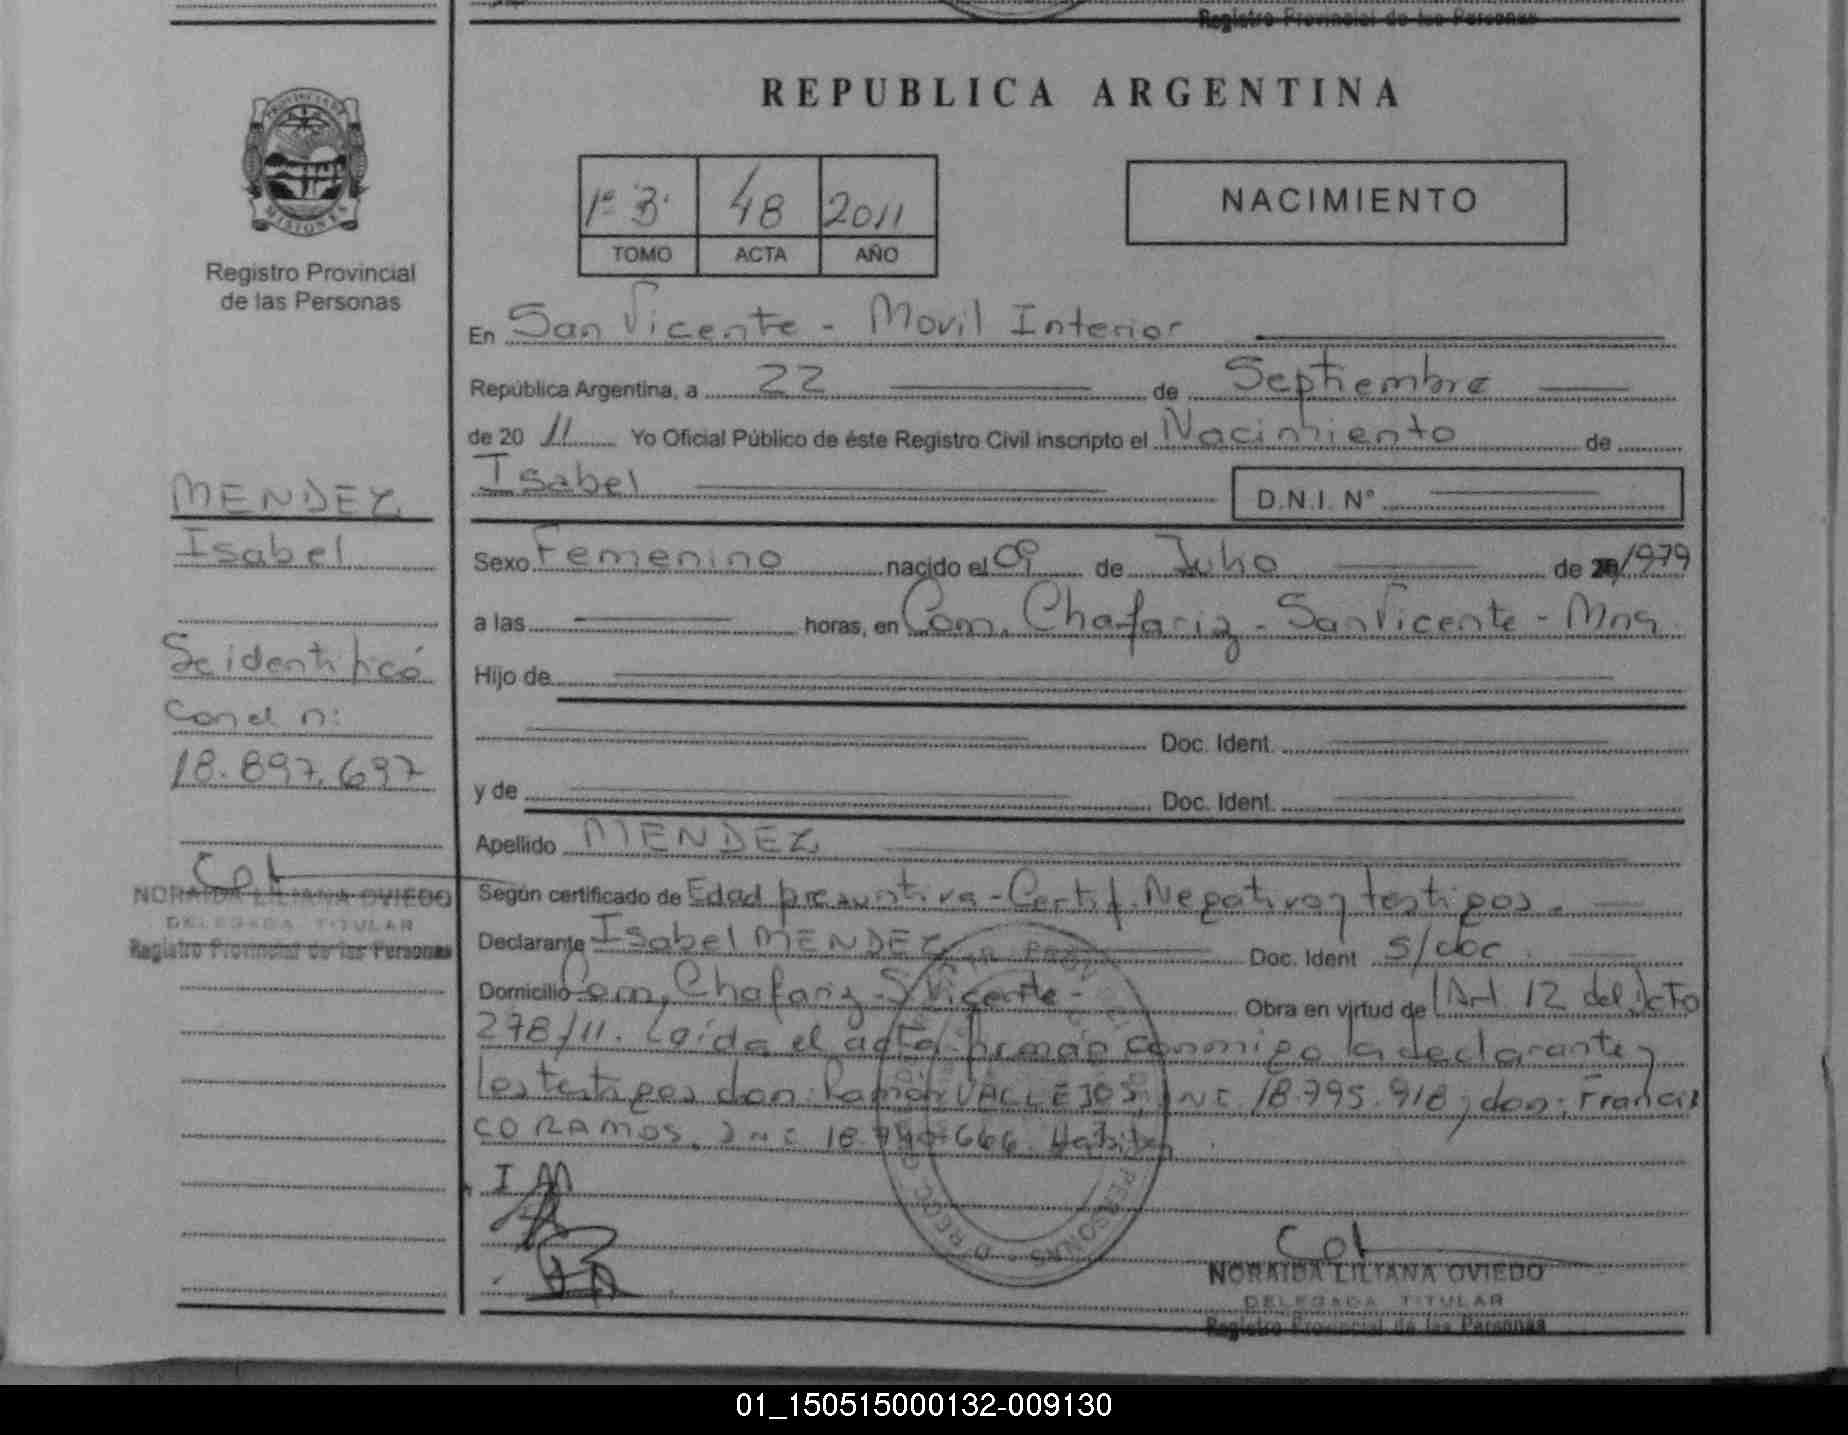 Registro Provincial de las Personas
REPUBLICA ARGENTINA
PROVINCIA DE
MISIONES
Registro Provincial
de las Personas
1º B. 48 2011
TOMO ACTA AÑO
NACIMIENTO
En San Vicente - Movil Interior
República Argentina, a 22 de Septiembre
de 20 11 Yo Oficial Público de éste Registro Civil inscripto el Nacimiento de
Isabel D.N.I. Nº
MENDEZ
Isabel
Se identificó
con el n:
18.897.697
NORAIDA LILIANA OVIEDO
DELEGADA TITULAR
Registro Provincial de las Personas
Sexo Femenino nacido el 09 de Julio de 1979
a las horas, en Com. Chafariz - San Vicente - Mns.
Hijo de
Doc. Ident.
y de Doc. Ident.
Apellido MENDEZ
Según certificado de Edad presuntiva - Certif. Negativo y testigos.
Declarante Isabel MENDEZ Doc. Ident S/doc
Domicilio Com. Chafariz - S. Vicente - Obra en virtud de Art 12 del Dcto
278/11. Leída el acta firman conmigo la declarante y
los testigos don: Ramón VALLEJOS, DNI 18.795.918 y don: Francis
CO RAMOS, DNI 18. 666. Habiten
I M
NORAIDA LILIANA OVIEDO
DELEGADA TITULAR
Registro Provincial de las Personas
01_150515000132-009130